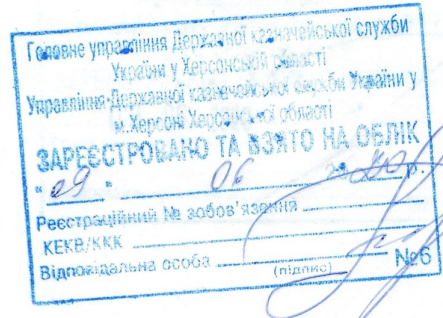 Головне управління Державної казначейської служби
України у Херсонській області
Управління Державної казначейської служби України у
м.Херсоні Херсонської області
ЗАРЕЄСТРОВАНО ТА ВЗЯТО НА ОБЛІК
"09" 06 2020 р.
Реєстраційний № зобов'язання
КЕКВ/ККК
Відповідальна особа №6
(підпис)